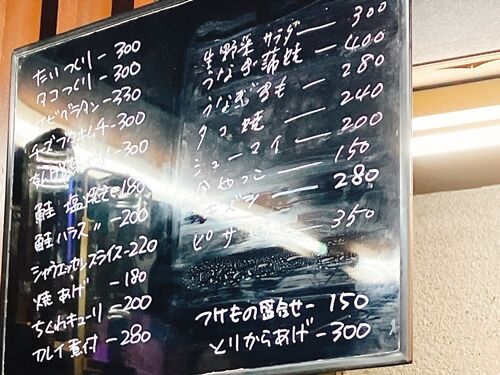 たいつくり - 300
タコつくり - 300
エビグラタン - 330
チーズ キムチ - 300
300
鮭 塩焼き - 180
鮭ハラス 〃 - 200
シャウエッセンスライス - 220
焼あげ - 180
ちくわキューリ - 200
カレイ煮付 - 280
生野菜サラダ - 300
うなぎ蒲焼 - 400
うなぎきも - 280
タコ焼 - 240
シューマイ - 200
150
280
ピザ - 350
つけもの盛合せ - 150
とりからあげ - 300